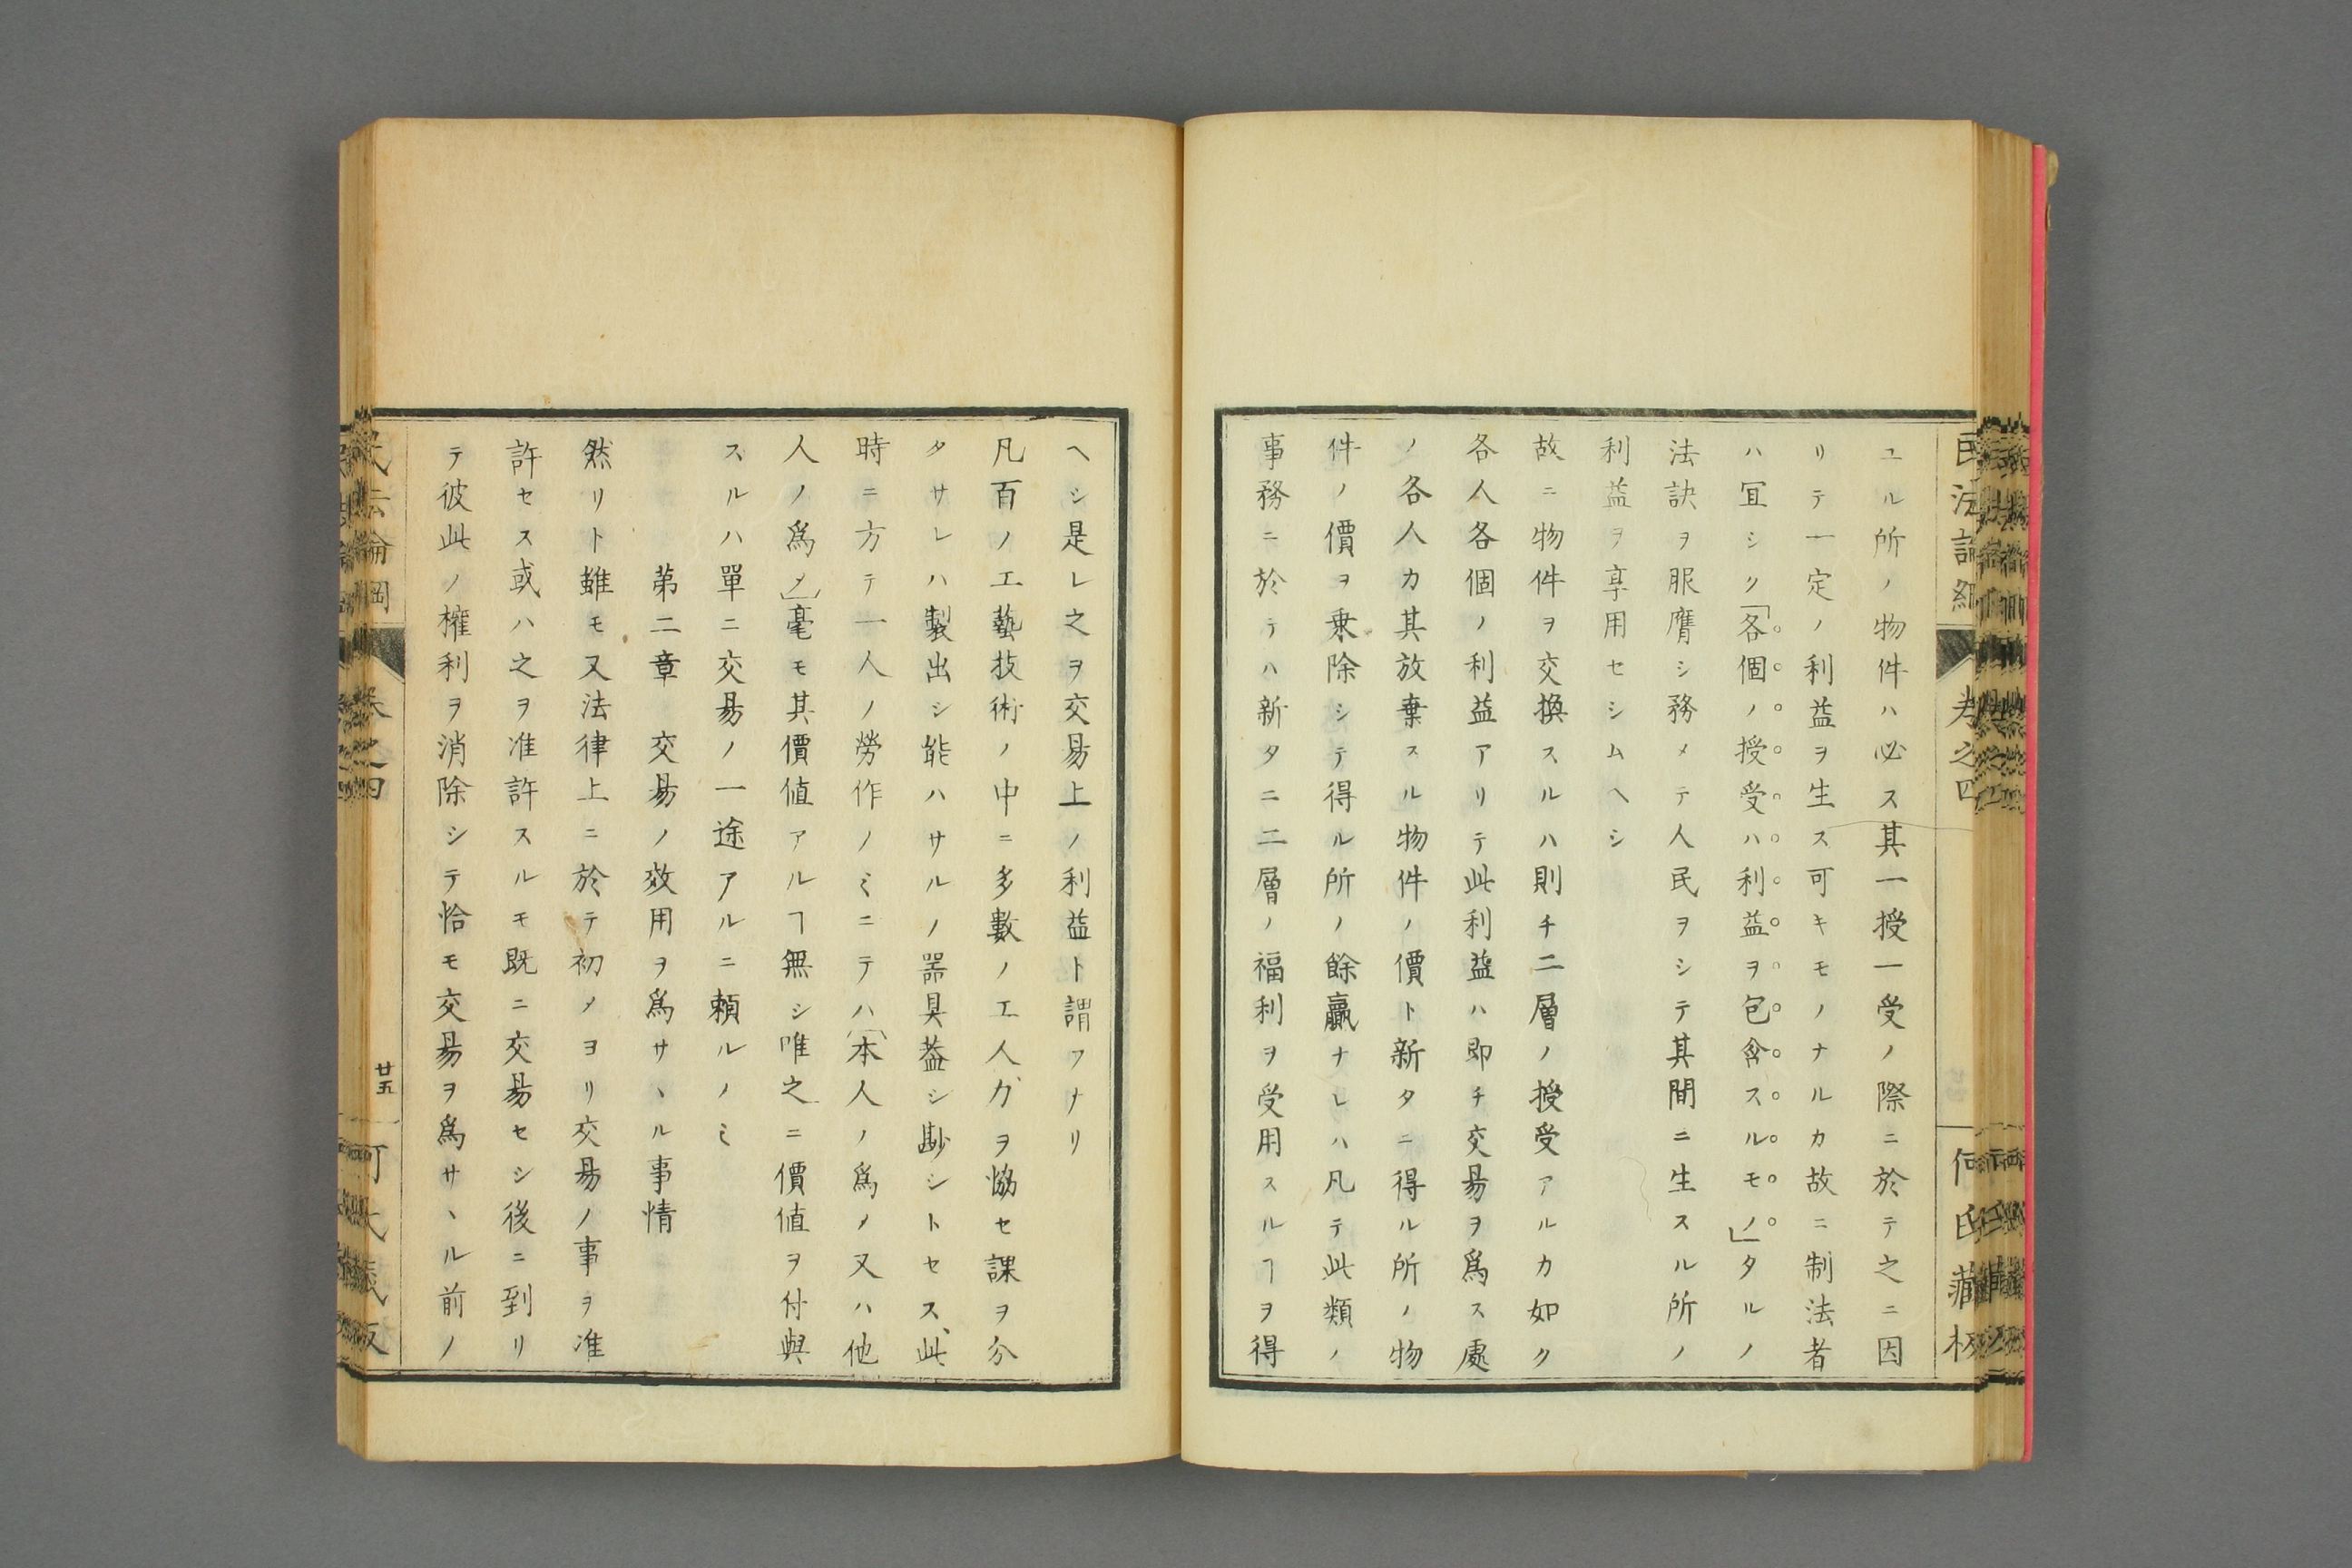 民法論綱
卷之四
何氏藏板
ユル所ノ物件ハ必ス其一授一受ノ際ニ於テ之ニ因
リテ一定ノ利益ヲ生ス可キモノナルカ故ニ制法者
ハ冝シク「各個ノ授受ハ利益ヲ包含スルモノ」タルノ
法訣ヲ服膺シ務メテ人民ヲシテ其間ニ生スル所ノ
利益ヲ享用セシムヘシ
故ニ物件ヲ交換スルハ則チ二層ノ授受アルカ如ク
各人各個ノ利益アリテ此利益ハ即チ交昜ヲ爲ス處
ノ各人カ其放棄スル物件ノ價ト新タニ得ル所ノ物
件ノ價ヲ乗除シテ得ル所ノ餘贏ナレハ凡テ此類ノ
事務ニ於テハ新タニ二層ノ福利ヲ受用スルヿヲ得
ヘシ是レ之ヲ交昜上ノ利益ト謂フナリ
凡百ノ工藝技術ノ中ニ多數ノ工人力ヲ恊セ課ヲ分
タサレハ製出シ能ハサルノ噐具葢シ尠シトセス、此
時ニ方テ一人ノ勞作ノミニテハ「本人ノ爲メ又ハ他
人ノ爲メ」毫モ其價値アルヿ無シ唯之ニ價値ヲ付與
スルハ單ニ交昜ノ一途アルニ頼ルノミ
第二章　交昜ノ效用ヲ爲サヽル事情
然リト雖モ又法律上ニ於テ初メヨリ交昜ノ事ヲ准
許セス或ハ之ヲ准許スルモ既ニ交昜セシ後ニ到リ
テ彼此ノ權利ヲ消除シテ恰モ交昜ヲ爲サヽル前ノ
民法論綱
卷之四
廿五
何氏藏板